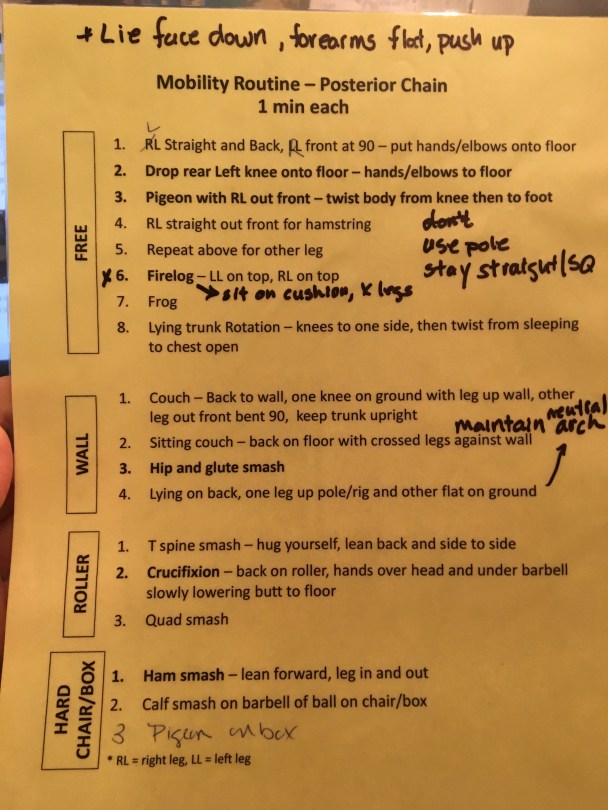 * Lie face down, forearms flat, push up
Mobility Routine – Posterior Chain
1 min each
FREE
1. RL Straight and Back, RL front at 90 – put hands/elbows onto floor
2. Drop rear Left knee onto floor – hands/elbows to floor
3. Pigeon with RL out front – twist body from knee then to foot
4. RL straight out front for hamstring
don't
5. Repeat above for other leg
use pole
stay straight/SQ
x 6. Firelog – LL on top, RL on top
→ sit on cushion, x legs
7. Frog
8. Lying trunk Rotation – knees to one side, then twist from sleeping
to chest open
WALL
1. Couch – Back to wall, one knee on ground with leg up wall, other
leg out front bent 90, keep trunk upright
maintain neutral arch
2. Sitting couch – back on floor with crossed legs against wall
3. Hip and glute smash
4. Lying on back, one leg up pole/rig and other flat on ground
ROLLER
1. T spine smash – hug yourself, lean back and side to side
2. Crucifixion – back on roller, hands over head and under barbell
slowly lowering butt to floor
3. Quad smash
HARD
CHAIR/BOX
1. Ham smash – lean forward, leg in and out
2. Calf smash on barbell of ball on chair/box
3 Pigeon on box
* RL = right leg, LL = left leg